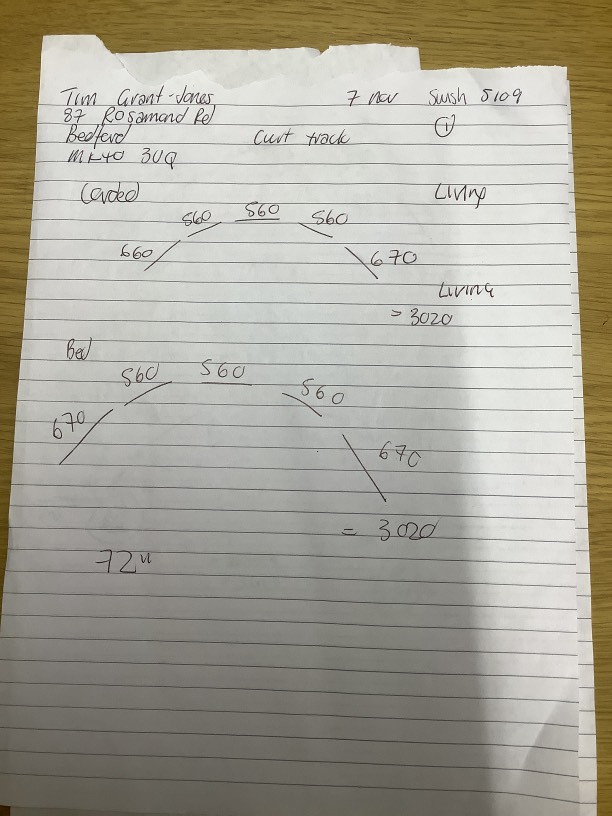 Tim Grant-Jones 7 nov Swish 5109
87 Rosamond Rd
Bedford Curt track
MK40 3UQ
(Corded) Living
560 560 560
660 670
Living
= 3020
Bed
560 560 560
670 670
= 3020
72"